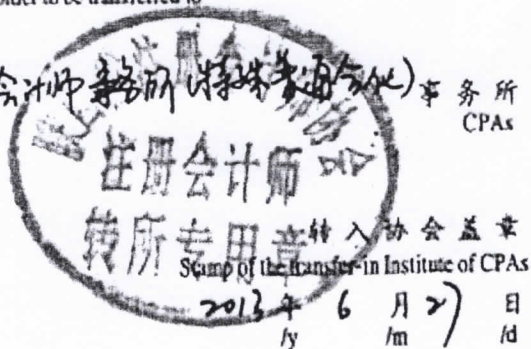 holder to be transferred to
会计师事务所(特殊普通合伙) 事务所
CPAs
注册会计师
转所专用章
转入协会盖章
Stamp of the transfer-in Institute of CPAs
2013年 6月27日
/y /m /d